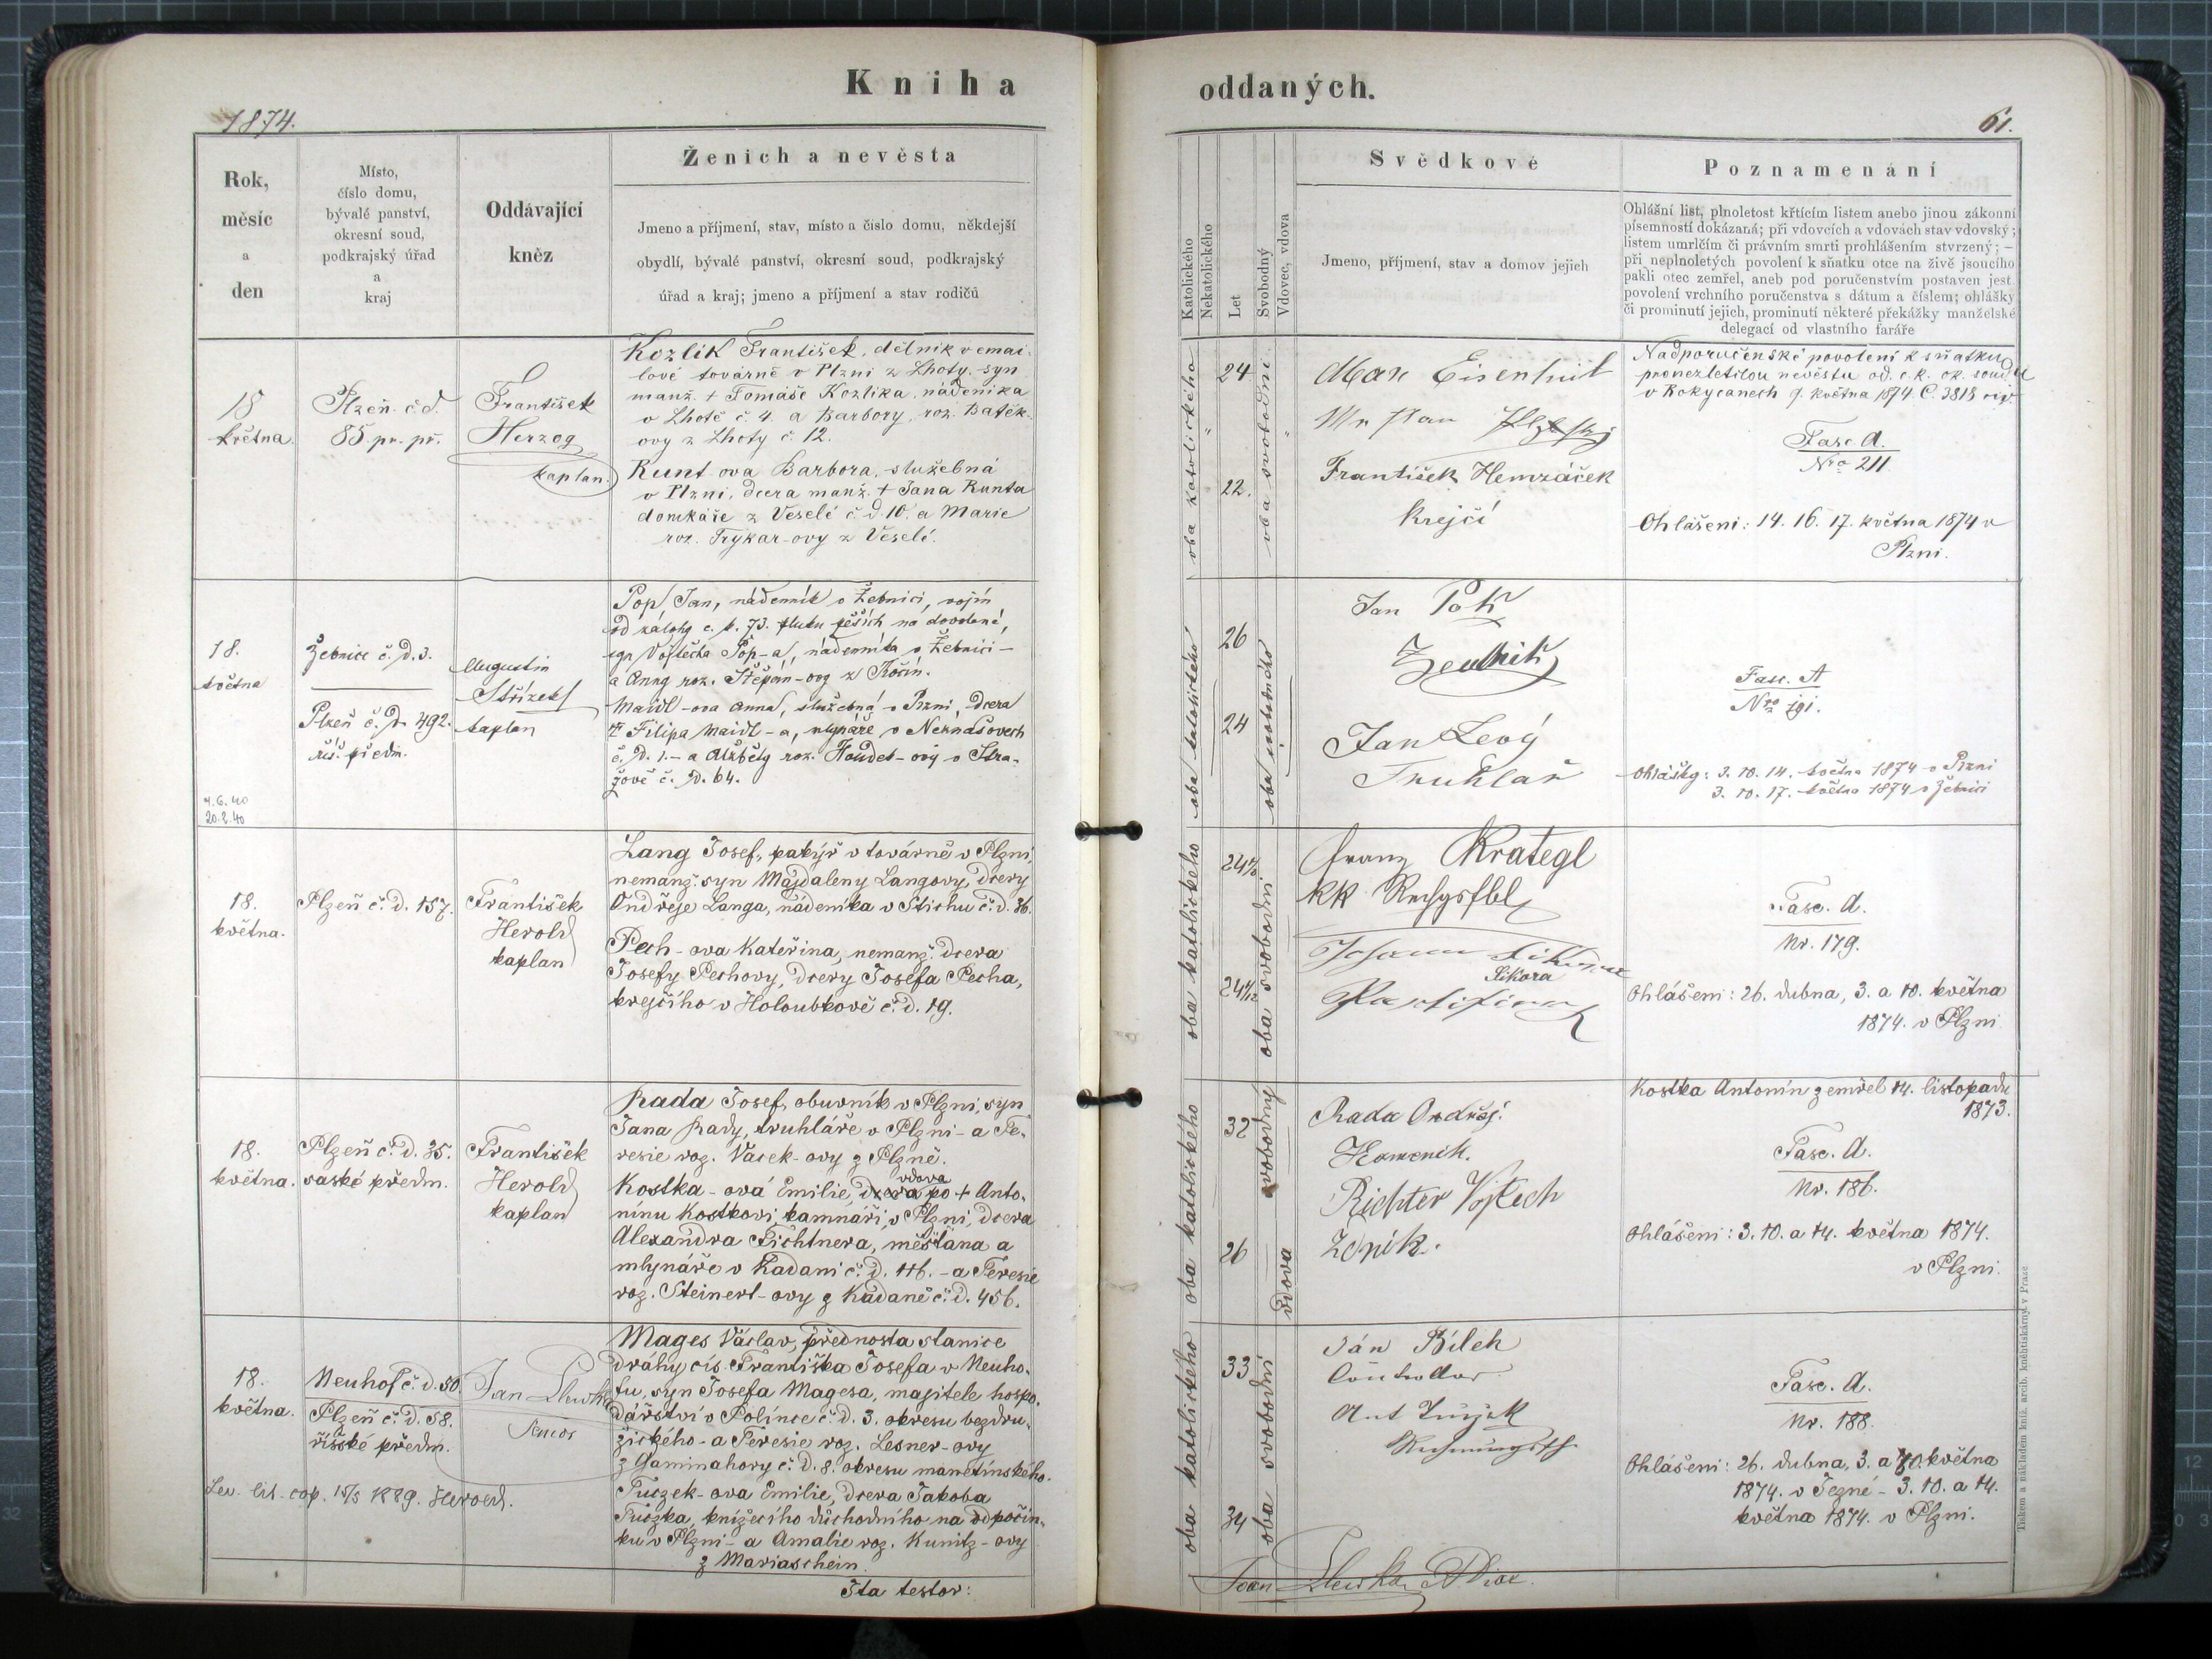 Kniha
oddaných.
1874.
61.
Rok,
měsíc
a
den
Místo,
číslo domu,
bývalé panství,
okresní soud,
podkrajský úřad
a
kraj
Oddávající
kněz
Ženich a nevěsta
Jmeno a příjmení, stav, místo a číslo domu, někdejší
obydlí, bývalé panství, okresní soud, podkrajský
úřad a kraj; jmeno a příjmení a stav rodičů
Katolického
Nekatolického
Let
Svobodný
Vdovec, vdova
Svědkové
Jmeno, příjmení, stav a domov jejich
Poznamenání
Ohlášní list, plnoletost křtícím listem anebo jinou zákonní
písemností dokázaná; při vdovcích a vdovách stav vdovský;
listem umrlčím či právním smrti prohlášením stvrzený; —
při neplnoletých povolení k sňatku otce na živě jsoucího
pakli otec zemřel, aneb pod poručenstvím postaven jest
povolení vrchního poručenstva s dátum a číslem; ohlášky
či prominutí jejich, prominutí některé překážky manželské
delegací od vlastního faráře
18
května.
Plzeň č.d.
85. pr. př.
František
Herzog
kaplan.
Kozlik František, dělník v emai-
lové továrně v Plzni z Lhoty, syn
manž. + Tomáše Kozlika, nádeníka
v Lhotě č. 4. a Barbory, roz. Batěk-
ovy z Lhoty č. 12.
Kunt-ova Barbora, služebná
v Plzni, dcera manž. + Jana Kunta
domkáře z Veselé č.d. 10. a Marie
roz. Trykar-ovy z Veselé.
oba katolického
24
22.
oba svobodni
Max Eisenhut
František Hemzáček
krejčí
Nadporučenské povolení k sňatku
pro nezletilou nevěstu od. c.k. ok. soudu
v Rokycanech 7. května 1874 Č. 3818 civ.
Fasc. A.
Nro 211
Ohlášeni: 14. 16. 17. května 1874 v
Plzni.
18.
května
Žebnice č. D. 3.
Plzeň č. D. 492.
říš. předm.
Augustin
Střízek
kaplan
Pop Jan, nádenník v Žebnici, vojín
od zálohy c. k. 73. pluku pěších na dovolené,
syn Vojtěcha Pop-a, nádenníka v Žebnici —
a Anny roz. Štěpán-ovy z Kočín.
Maidl-ova Anna, služebná v Plzni, dcera
+ Filipa Maidl-a, mlynáře v Neznašovech
č. D. 1. — a Alžběty roz. Houdek-ový v Stra-
žově č. D. 64.
4.6.40
20.2.40
oba katolického
26
24
oba svobodného
Jan Pok
Zedník
Jan Levý
Truhlař
Fasc. A
Nro 191.
Ohlášky: 3. 10. 14. května 1874 v Plzni
3. 10. 17. května 1874 v Žebnici
18.
května.
Plzeň č. d. 157.
František
Herold
kaplan
Lang Josef, pakýř v továrně v Plzni,
nemanž. syn Majdaleny Langovy, dcery
Ondřeje Langa, nádeníka v Stichu č. d. 36.
Pech-ova Kateřina, nemanž. dcera
Josefy Pechovy, dcery Josefa Pecha,
krejčího v Holoubkově č. d. 19.
oba katolického
oba svobodni
Franz Krategl
kk
Johann
Sikora
Fasc. A.
Nr. 179.
Ohlášeni: 26. dubna, 3. a 10. května
1874. v Plzni
18.
května.
Plzeň č. d. 35.
saské předm.
František
Herold
kaplan
Rada Josef, obuvník v Plzni, syn
Jana Rady, truhláře v Plzni - a Te-
resie roz. Vacek-ovy z Plzně.
vdova
Kostka-ová Emilie, dcera po + Anto-
nínu Kostkovi, kamnáři, v Plzni, dcera
Alexandra Fichtnera, měšťana a
mlynáře v Kadani č. d. 116. - a Teresie
roz. Steinerl-ovy z Kadaně č. d. 456.
oba katolického
32
26
svobodný
vdova
Rada Ondřej.
Kamenik.
Richter Vojtech
Zdník.
Kostka Antonín zemřel 14. listopadu
1873.
Fasc. A.
Nr. 186.
Ohlášeni: 3. 10. a 14. května 1874.
v Plzni.
18.
května.
Neuhof č. d. 50.
Plzeň č. d. 58.
říšské předm.
Jan
Mages Václav, přednosta stanice
dráhy cís. Františka Josefa v Neuho-
fu, syn Josefa Magesa, majitele hospo-
dářství v Polínce č. d. 3. okresu bezdru-
žického - a Teresie roz. Lesner-ovy
z Gaminahory č. d. 8. okresu manetínského.
Tuczek-ova Emilie, dcera Jakoba
Tuczka, knížecího důchodního na odpočin-
ku v Plzni - a Amalie roz. Kunitz-ovy
z Mariaschein.
Lev. lit. cop. 15/5 1889. Herold.
oba katolického
33
34
oba svobodni
Ján Bílek
Fasc. A.
Nr. 188.
Ohlášeni: 26. dubna, 3. a 10. května
1874. v Tezné - 3. 10. a 14.
května 1874. v Plzni.
Ita testor:
Tiskem a nákladem kníž. arcib. kněhtiskárny v Praze